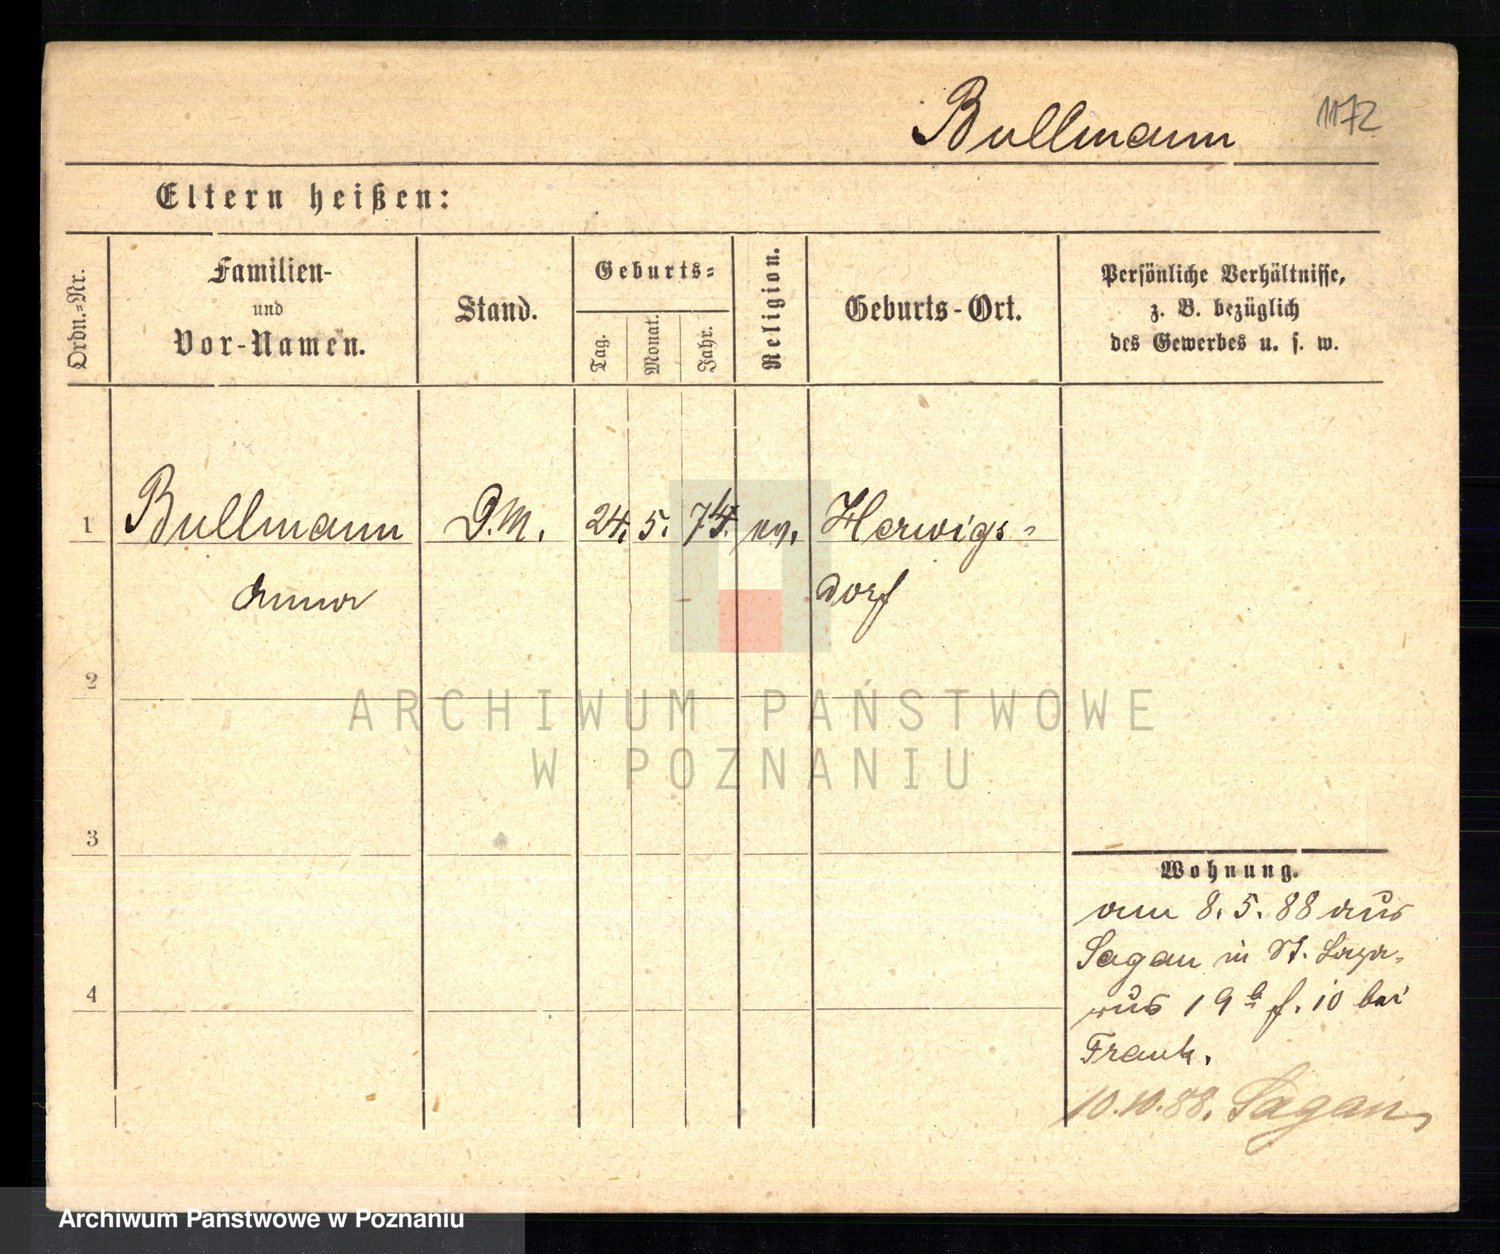 Bullmann 1172
Eltern heißen:
Ordn.-Nr.
Familien-
und
Vor-Namen.
Stand.
Geburts-
Tag.
Monat.
Jahr.
Religion.
Geburts-Ort.
Persönliche Verhältnisse,
z. B. bezüglich
des Gewerbes u. s. w.
1 Bullmann D.M. 24. 5. 74. ev. Herwigs-
Anna dorf
2
ARCHIWUM PAŃSTWOWE
W POZNANIU
3
Wohnung.
am 8. 5. 88 aus
Sagan in St. Laza-
rus 19 b f. 10 bei
Frank.
10.10.88. Sagan
4
Archiwum Państwowe w Poznaniu